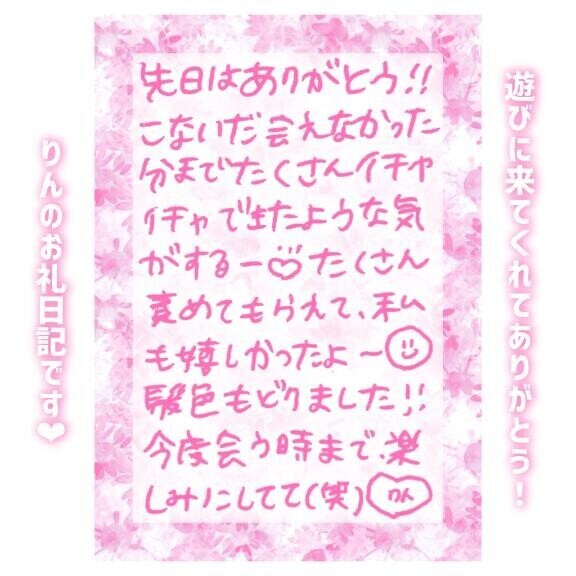 遊びに来てくれてありがとう！
先日はありがとう!!
こないだ会えなかった
分までたくさんイチャ
イチャできたような気
がするー♡たくさん
責めてもらえて、私
も嬉しかったよ〜☺
髪色もどりました!!
今度会う時まで、楽
しみにしてて(笑)
りん
りんのお礼日記です❤